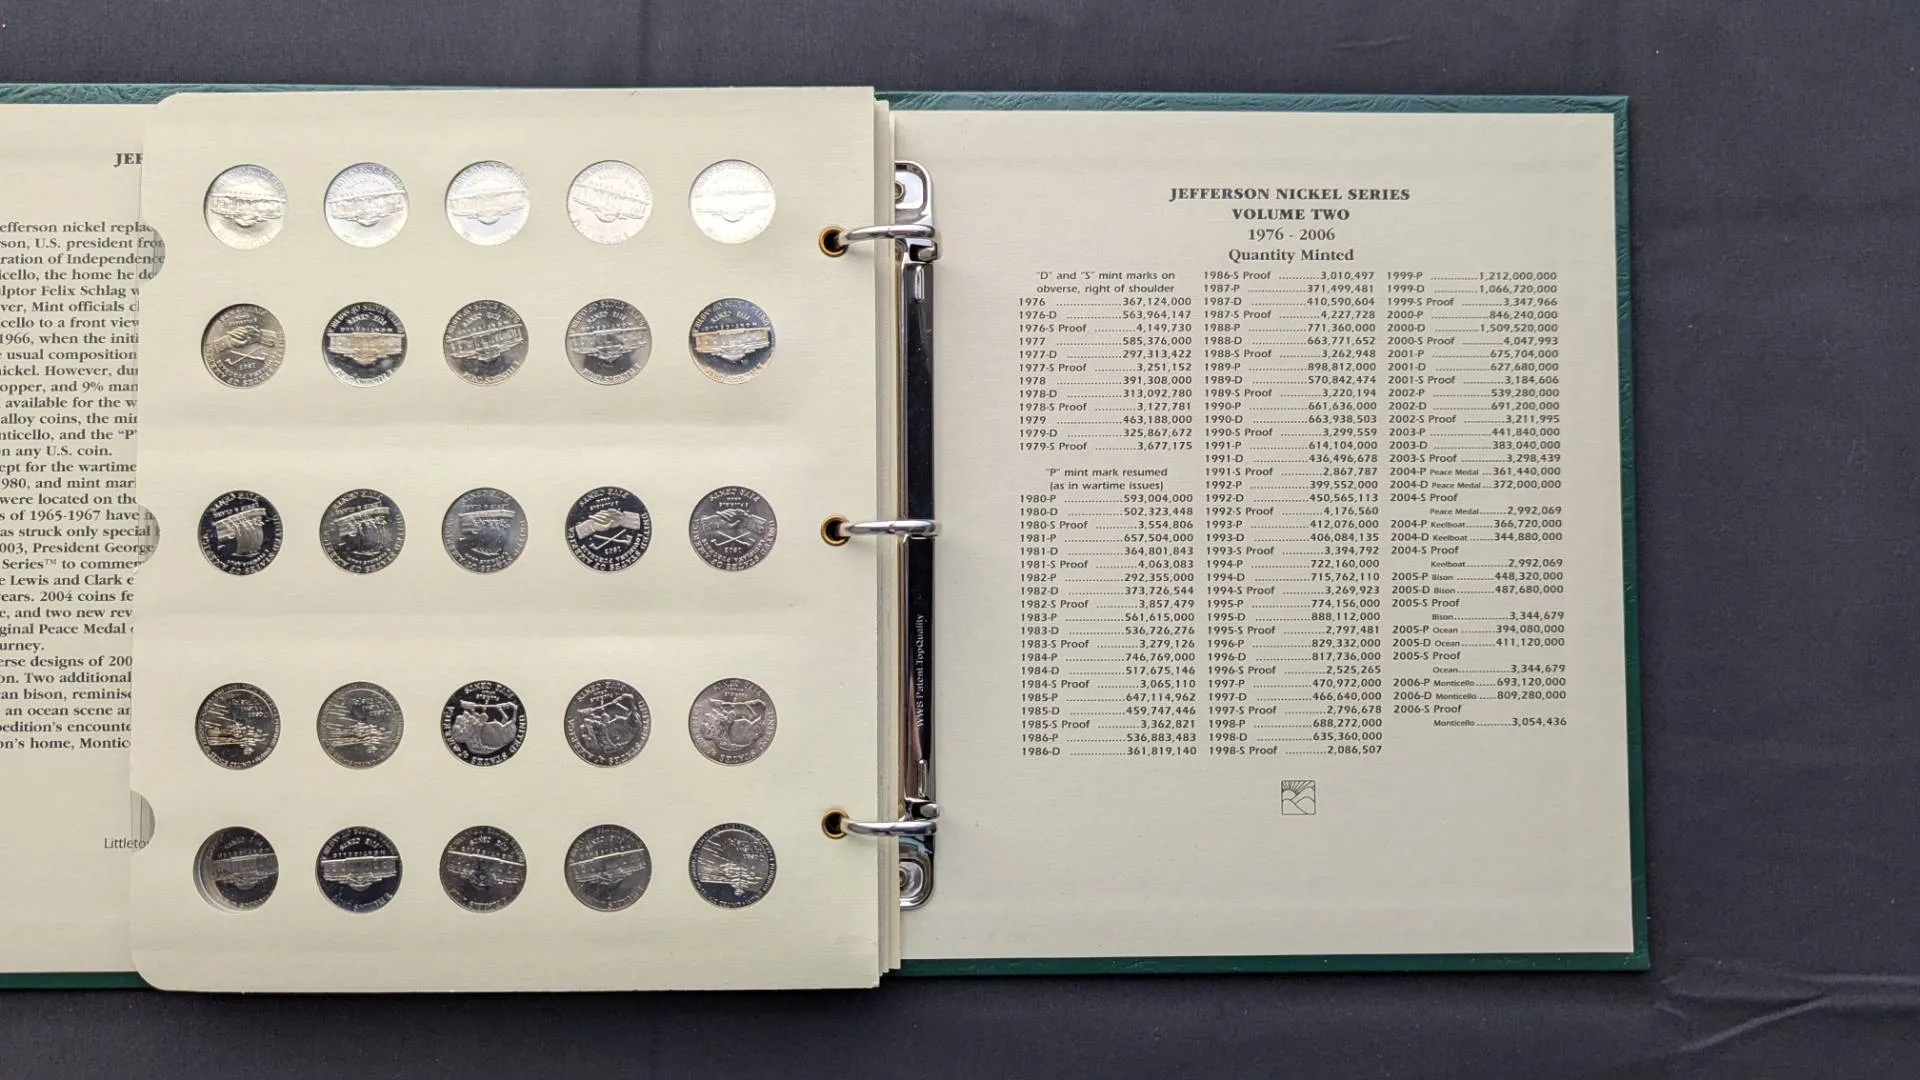 JEF
efferson nickel replac
rson, U.S. president from
ration of Independence
icello, the home he de
lptor Felix Schlag w
ver, Mint officials c
cello to a front view
1966, when the initi
e usual composition
nickel. However, dur
opper, and 9% man
available for the w
alloy coins, the min
nticello, and the "P"
n any U.S. coin.
ept for the wartime
1980, and mint mar
were located on the
s of 1965-1967 have
as struck only special
003, President George
Series™ to commem
e Lewis and Clark e
years. 2004 coins fe
e, and two new rev
ginal Peace Medal
urney.
erse designs of 200
on. Two additional
can bison, reminis
an ocean scene an
pedition's encounte
on's home, Montic
Littleto
WWS Patent TopQuality
JEFFERSON NICKEL SERIES
VOLUME TWO
1976 - 2006
Quantity Minted
"D" and "S" mint marks on
obverse, right of shoulder
1976 ................367,124,000
1976-D ..............563,964,147
1976-S Proof ..........4,149,730
1977 ................585,376,000
1977-D ..............297,313,422
1977-S Proof ..........3,251,152
1978 ................391,308,000
1978-D ..............313,092,780
1978-S Proof ..........3,127,781
1979 ................463,188,000
1979-D ..............325,867,672
1979-S Proof ..........3,677,175
"P" mint mark resumed
(as in wartime issues)
1980-P ..............593,004,000
1980-D ..............502,323,448
1980-S Proof ..........3,554,806
1981-P ..............657,504,000
1981-D ..............364,801,843
1981-S Proof ..........4,063,083
1982-P ..............292,355,000
1982-D ..............373,726,544
1982-S Proof ..........3,857,479
1983-P ..............561,615,000
1983-D ..............536,726,276
1983-S Proof ..........3,279,126
1984-P ..............746,769,000
1984-D ..............517,675,146
1984-S Proof ..........3,065,110
1985-P ..............647,114,962
1985-D ..............459,747,446
1985-S Proof ..........3,362,821
1986-P ..............536,883,483
1986-D ..............361,819,140
1986-S Proof ..........3,010,497
1987-P ..............371,499,481
1987-D ..............410,590,604
1987-S Proof ..........4,227,728
1988-P ..............771,360,000
1988-D ..............663,771,652
1988-S Proof ..........3,262,948
1989-P ..............898,812,000
1989-D ..............570,842,474
1989-S Proof ..........3,220,194
1990-P ..............661,636,000
1990-D ..............663,938,503
1990-S Proof ..........3,299,559
1991-P ..............614,104,000
1991-D ..............436,496,678
1991-S Proof ..........2,867,787
1992-P ..............399,552,000
1992-D ..............450,565,113
1992-S Proof ..........4,176,560
1993-P ..............412,076,000
1993-D ..............406,084,135
1993-S Proof ..........3,394,792
1994-P ..............722,160,000
1994-D ..............715,762,110
1994-S Proof ..........3,269,923
1995-P ..............774,156,000
1995-D ..............888,112,000
1995-S Proof ..........2,797,481
1996-P ..............829,332,000
1996-D ..............817,736,000
1996-S Proof ..........2,525,265
1997-P ..............470,972,000
1997-D ..............466,640,000
1997-S Proof ..........2,796,678
1998-P ..............688,272,000
1998-D ..............635,360,000
1998-S Proof ..........2,086,507
1999-P ............1,212,000,000
1999-D ............1,066,720,000
1999-S Proof ..........3,347,966
2000-P ..............846,240,000
2000-D ............1,509,520,000
2000-S Proof ..........4,047,993
2001-P ..............675,704,000
2001-D ..............627,680,000
2001-S Proof ..........3,184,606
2002-P ..............539,280,000
2002-D ..............691,200,000
2002-S Proof ..........3,211,995
2003-P ..............441,840,000
2003-D ..............383,040,000
2003-S Proof ..........3,298,439
2004-P Peace Medal ...361,440,000
2004-D Peace Medal ...372,000,000
2004-S Proof
Peace Medal........2,992,069
2004-P Keelboat.......366,720,000
2004-D Keelboat.......344,880,000
2004-S Proof
Keelboat...........2,992,069
2005-P Bison ..........448,320,000
2005-D Bison ..........487,680,000
2005-S Proof
Bison..............3,344,679
2005-P Ocean .........394,080,000
2005-D Ocean .........411,120,000
2005-S Proof
Ocean..............3,344,679
2006-P Monticello .....693,120,000
2006-D Monticello .....809,280,000
2006-S Proof
Monticello .........3,054,436